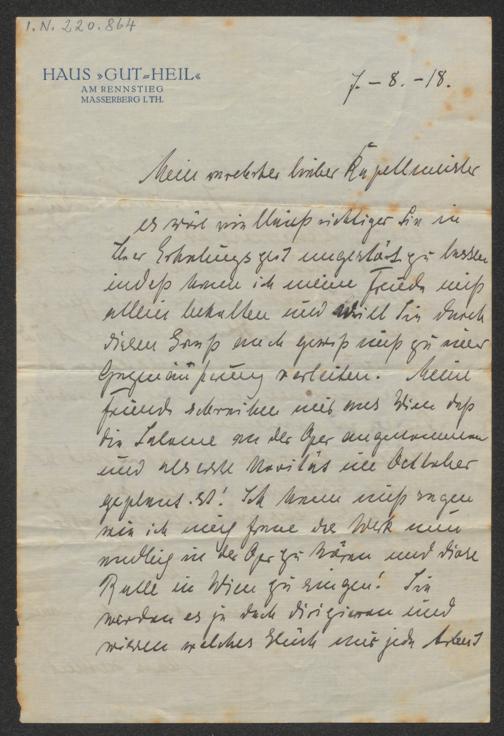 I.N. 220.864
HAUS »GUT=HEIL«
AM RENNSTIEG
MASSERBERG I. TH.
7. – 8. – 18.
Mein verehrter lieber Kapellmeister
es wär vielleicht richtiger Sie in
Ihrer Erholungszeit ungestört zu lassen
indeß kann ich meine Freude nicht
allein behalten und will Sie durch
diesen Gruß auch gewiß nicht zu einer
Gegenäußerung verleiten. Meine
Freunde schreiben mir aus Wien daß
die Salome an der Oper angenommen
und als erste Novität im Oktober
geplant ist! Ich kann nicht sagen
wie ich mich freue das Werk nun
endlich in der Oper zu hören und diese
Rolle in Wien zu singen! Sie
werden es ja doch dirigieren und
wissen welches Glück mir jede Arbeit